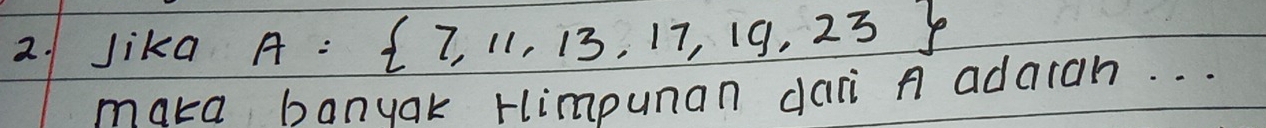 2. Jika A : { 7, 11, 13, 17, 19, 23 }
maka banyak Himpunan dari A adalah ...